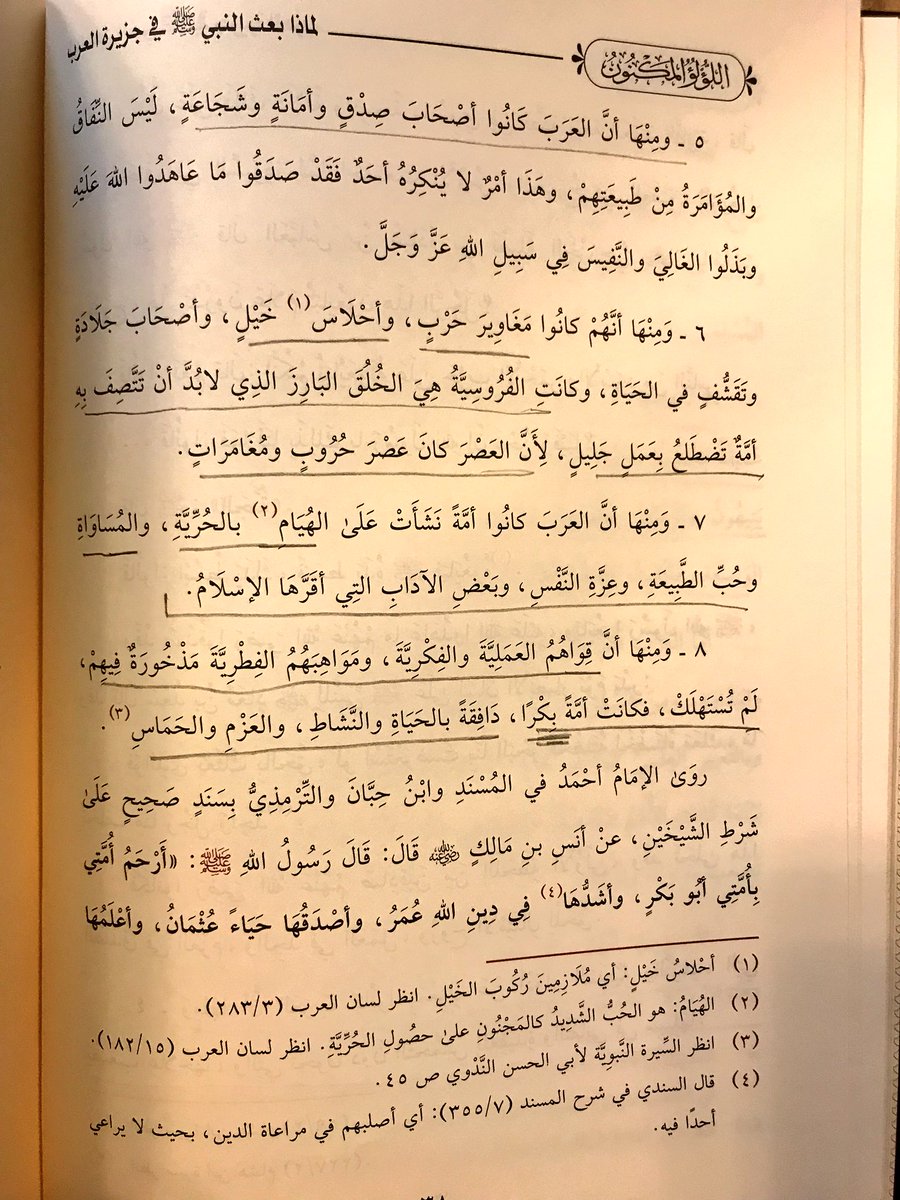 اللُّؤْلُؤُ المَكْنُونُ
لماذا بعث النبي ﷺ في جزيرة العرب
٥ ـ ومِنْهَا أنَّ العَرَبَ كَانُوا أصْحَابَ صِدْقٍ وأمَانَةٍ وشَجَاعَةٍ، لَيْسَ النِّفَاقُ
والمُؤَامَرَةُ مِنْ طَبِيعَتِهِمْ، وهَذَا أمْرٌ لا يُنْكِرُهُ أحَدٌ فَقَدْ صَدَقُوا مَا عَاهَدُوا اللهَ عَلَيْهِ
وبَذَلُوا الغَالِيَ والنَّفِيسَ فِي سَبِيلِ اللهِ عَزَّ وَجَلَّ.
٦ ـ وَمِنْهَا أنَّهُمْ كانُوا مَغَاوِيرَ حَرْبٍ، وأحْلَاسَ (١) خَيْلٍ، وأصْحَابَ جَلَادَةٍ
وتَقَشُّفٍ في الحَيَاةِ، وكانَتِ الفُرُوسِيَّةُ هِيَ الخُلُقَ البَارِزَ الذِي لابُدَّ أنْ تَتَّصِفَ بِهِ
أمَّةٌ تَضْطَلِعُ بِعَمَلٍ جَلِيلٍ، لِأنَّ العَصْرَ كانَ عَصْرَ حُرُوبٍ ومُغَامَرَاتٍ.
٧ ـ وَمِنْهَا أنَّ العَرَبَ كانُوا أمَّةً نَشَأَتْ عَلَىٰ الهُيَامِ (٢) بالحُرِّيَّةِ، والمُسَاوَاةِ
وحُبِّ الطَّبِيعَةِ، وعِزَّةِ النَّفْسِ، وبَعْضِ الآدَابِ التِي أقَرَّهَا الإسْلَامُ.
٨ ـ وَمِنْهَا أنَّ قِوَاهُمُ العَمَلِيَّةَ والفِكْرِيَّةَ، ومَوَاهِبَهُمُ الفِطْرِيَّةَ مَذْخُورَةٌ فِيهِمْ،
لَمْ تُسْتَهْلَكْ، فكانَتْ أمَّةً بِكْرًا، دَافِقَةً بالحَيَاةِ والنَّشَاطِ، والعَزْمِ والحَمَاسِ (٣).
روَىٰ الإمَامُ أحْمَدُ في المُسْنَدِ وابْنُ حِبَّانَ والتِّرْمِذِيُّ بِسَنَدٍ صَحِيحٍ عَلَىٰ
شَرْطِ الشَّيْخَيْنِ، عنْ أنَسِ بنِ مَالِكٍ رضي الله عنه قَالَ: قَالَ رَسُولُ اللهِ ﷺ: «أَرْحَمُ أُمَّتِي
بِأُمَّتِي أبُو بَكْرٍ، وأشَدُّهَا (٤) فِي دِينِ اللهِ عُمَرُ، وأصْدَقُهَا حَيَاءً عُثْمَانُ، وأعْلَمُهَا
(١) أحْلاسُ خَيْلٍ: أي مُلَازِمِينَ رُكُوبَ الخَيْلِ. انظر لسان العرب (٢٨٣/٣).
(٢) الهُيَامُ: هو الحُبُّ الشَّدِيدُ كالمَجْنُونِ علىٰ حصُولِ الحُرِّيَّةِ. انظر لسان العرب (١٨٢/١٥).
(٣) انظر السِّيرة النَّبويَّة لأبي الحسن النَّدْوي ص ٤٥.
(٤) قال السندي في شرح المسند (٣٥٥/٧): أي أصلبهم في مراعاة الدين، بحيث لا يراعي
أحدًا فيه.